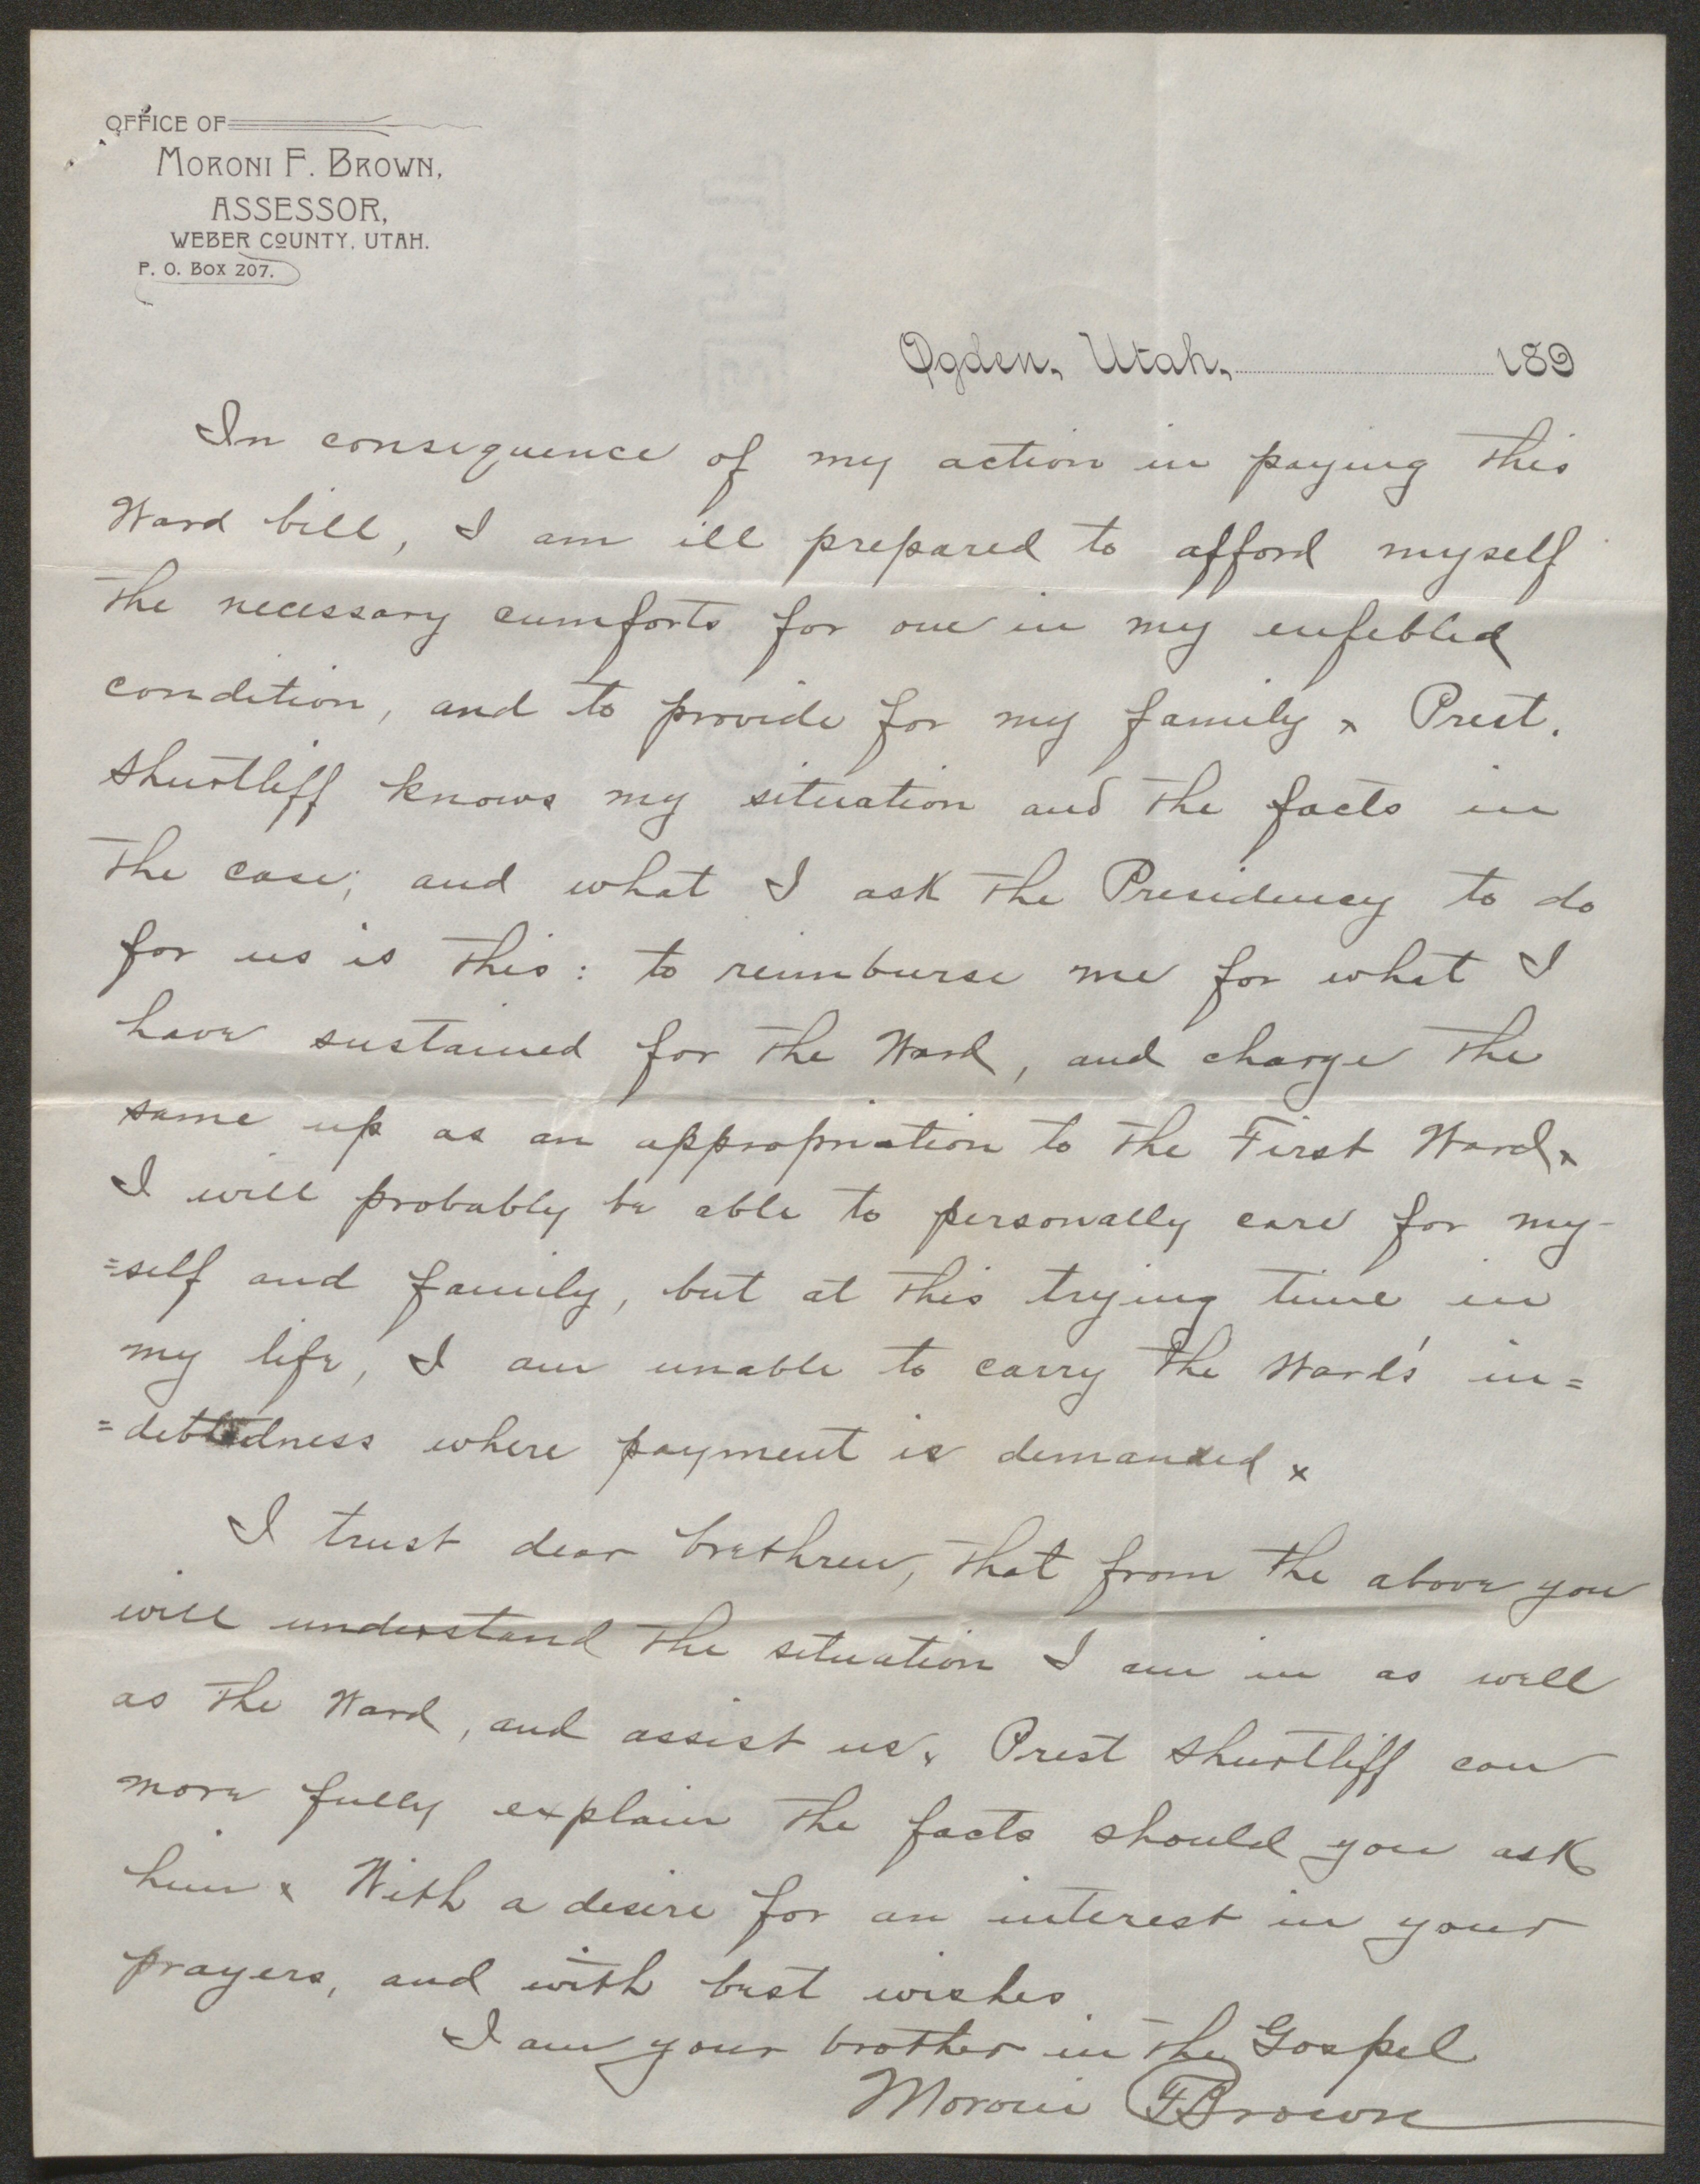 OFFICE OF
MORONI F. BROWN,
ASSESSOR,
WEBER COUNTY, UTAH.
P. O. BOX 207.
Ogden, Utah, 189
In consequence of my action in paying this
Ward bill, I am ill prepared to afford myself
the necessary cumforts for one in my enfebled
condition, and to provide for my family x Prest.
Shurtliff knows my situation and the facts in
the case; and what I ask the Presidency to do
for us is this: to reimburse me for what I
have sustained for the Ward, and charge the
same up as an appropriation to the First Ward x
I will probably be able to personally care for my-
=self and family, but at this trying time in
my life, I am unable to carry the Ward's in=
=debtedness where payment is demanded x
I trust dear brethren, that from the above you
will understand the situation I am in as well
as the Ward, and assist us x Prest Shurtliff can
more fully explain the facts should you ask
him x With a desire for an interest in your
prayers, and with best wishes.
I am your brother in the Gospel
Moroni F Brown